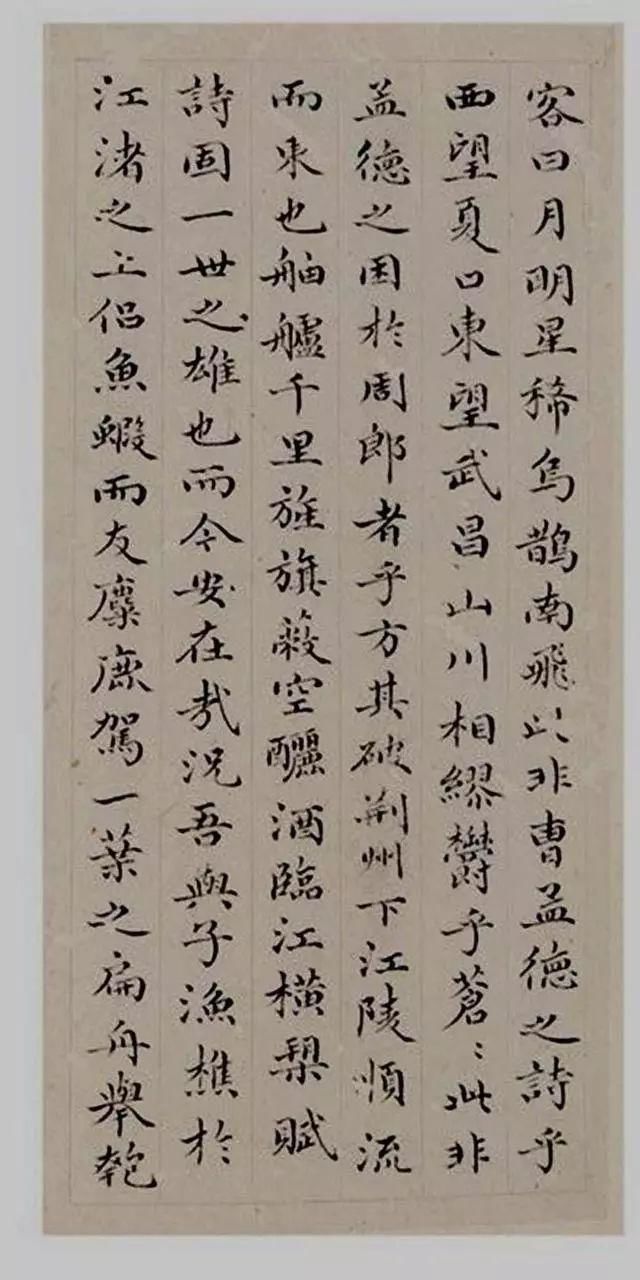 客曰月明星稀烏鵲南飛此非曹孟德之詩乎
西望夏口東望武昌山川相繆欝乎蒼〻此非
孟德之困於周郎者乎方其破荆州下江陵順流
而東也舳艫千里旌旗蔽空釃酒臨江横槊賦
詩固一世之雄也而今安在哉況吾與子漁樵於
江渚之上侣魚蝦而友麋鹿駕一葉之扁舟舉匏